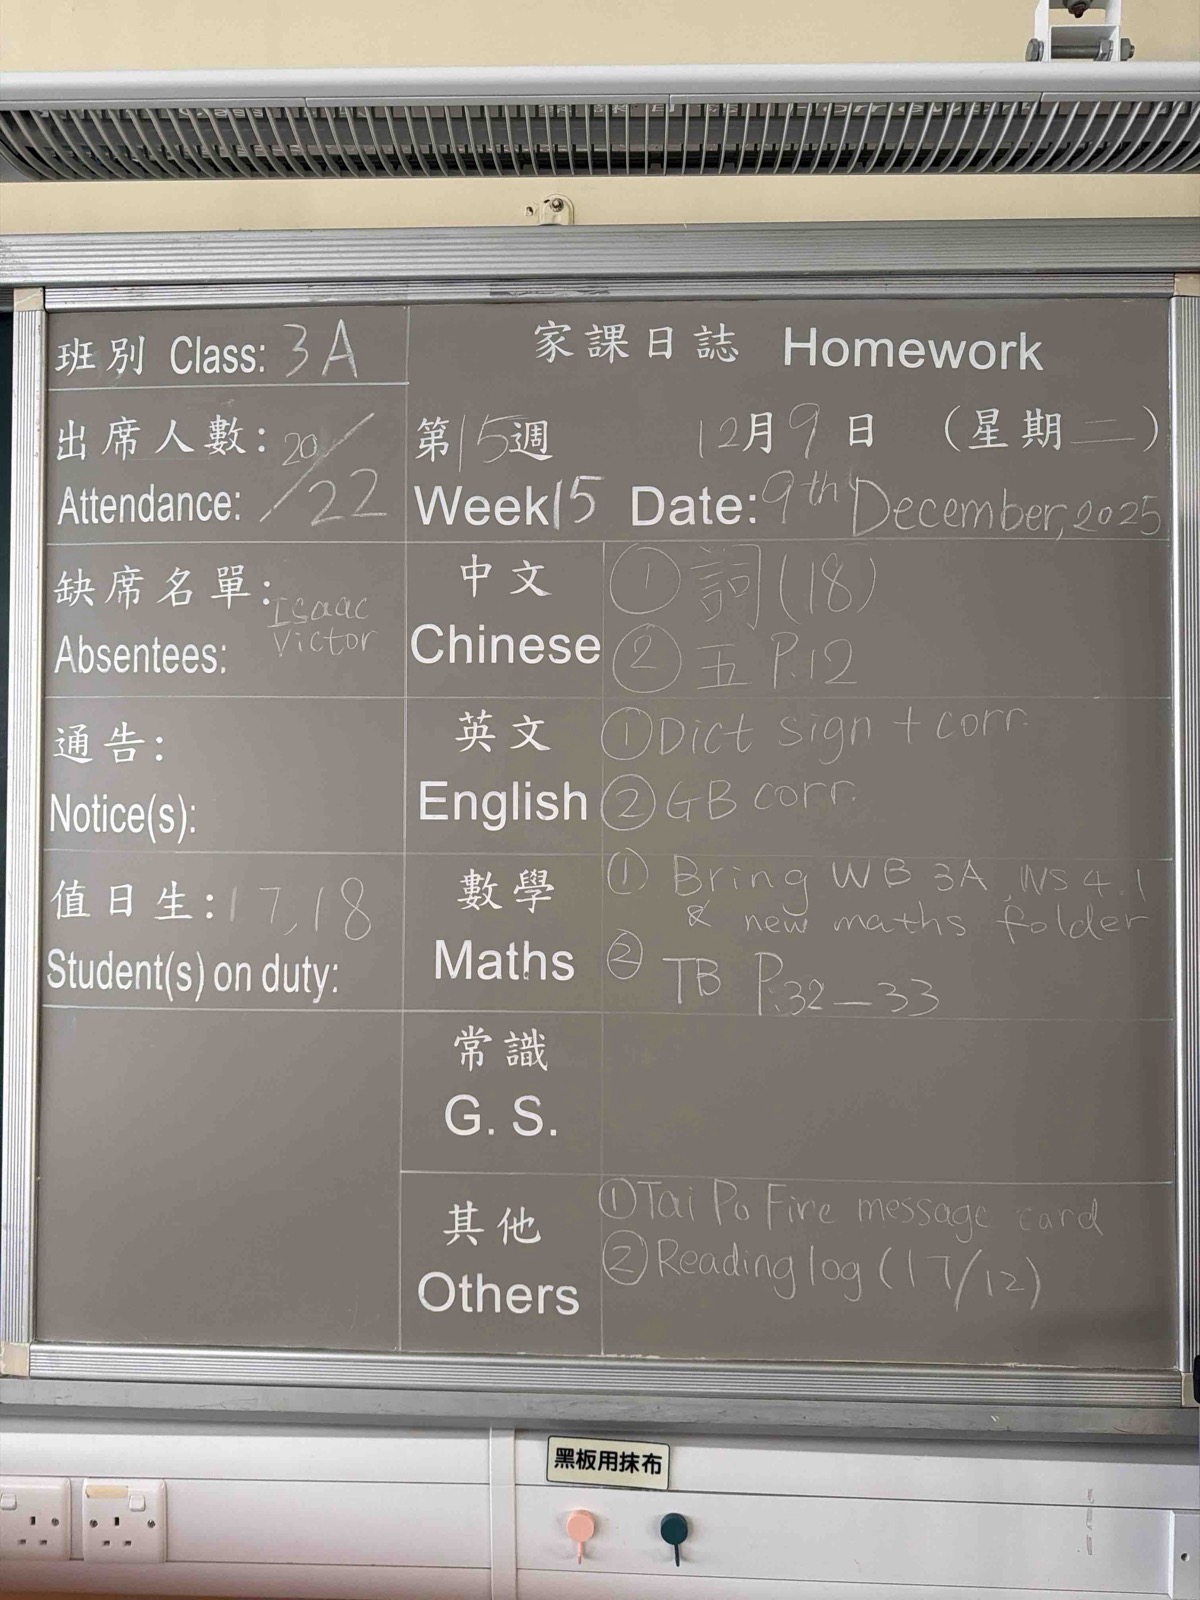 班別 Class: 3A
家課日誌 Homework
出席人數: 20/22
Attendance:
第15週 12月9日 (星期二)
Week15 Date: 9th December, 2025
缺席名單: Isaac
Absentees: Victor
中文
Chinese
① 詞(18)
② 五 P.12
通告:
Notice(s):
英文
English
① Dict sign + corr.
② GB corr.
值日生: 17, 18
Student(s) on duty:
數學
Maths
① Bring WB 3A, WS 4.1
& new maths folder
② TB P.32-33
常識
G. S.
其他
Others
① Tai Po Fire message card
② Reading log (17/12)
黑板用抹布